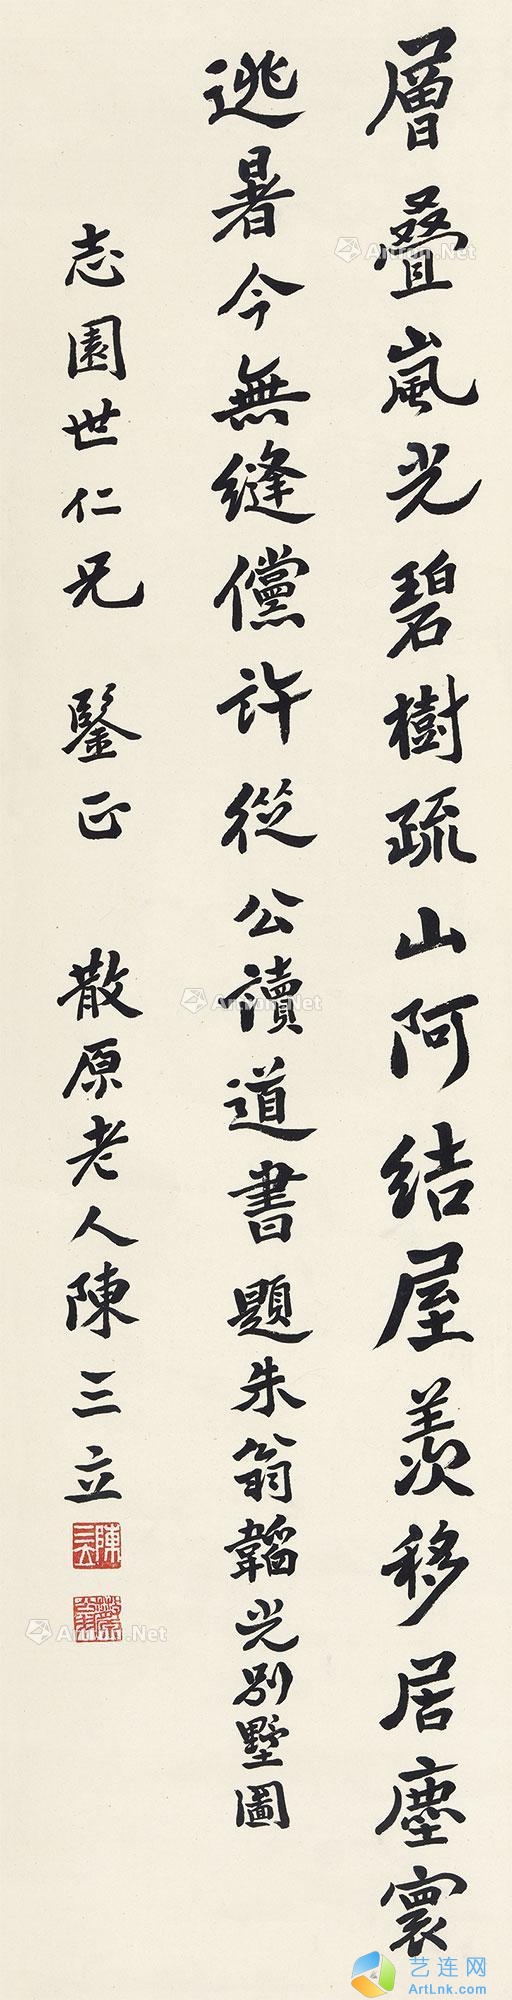 層疊嵐光碧樹疏山阿結屋羨移居塵寰
逃暑今無縫儻許從公讀道書題朱翁韜光別墅圖
志園世仁兄 鑒正 散原老人陳三立
Artron.Net
Artron.Net
Artron.Net
艺连网
ArtLnk.com